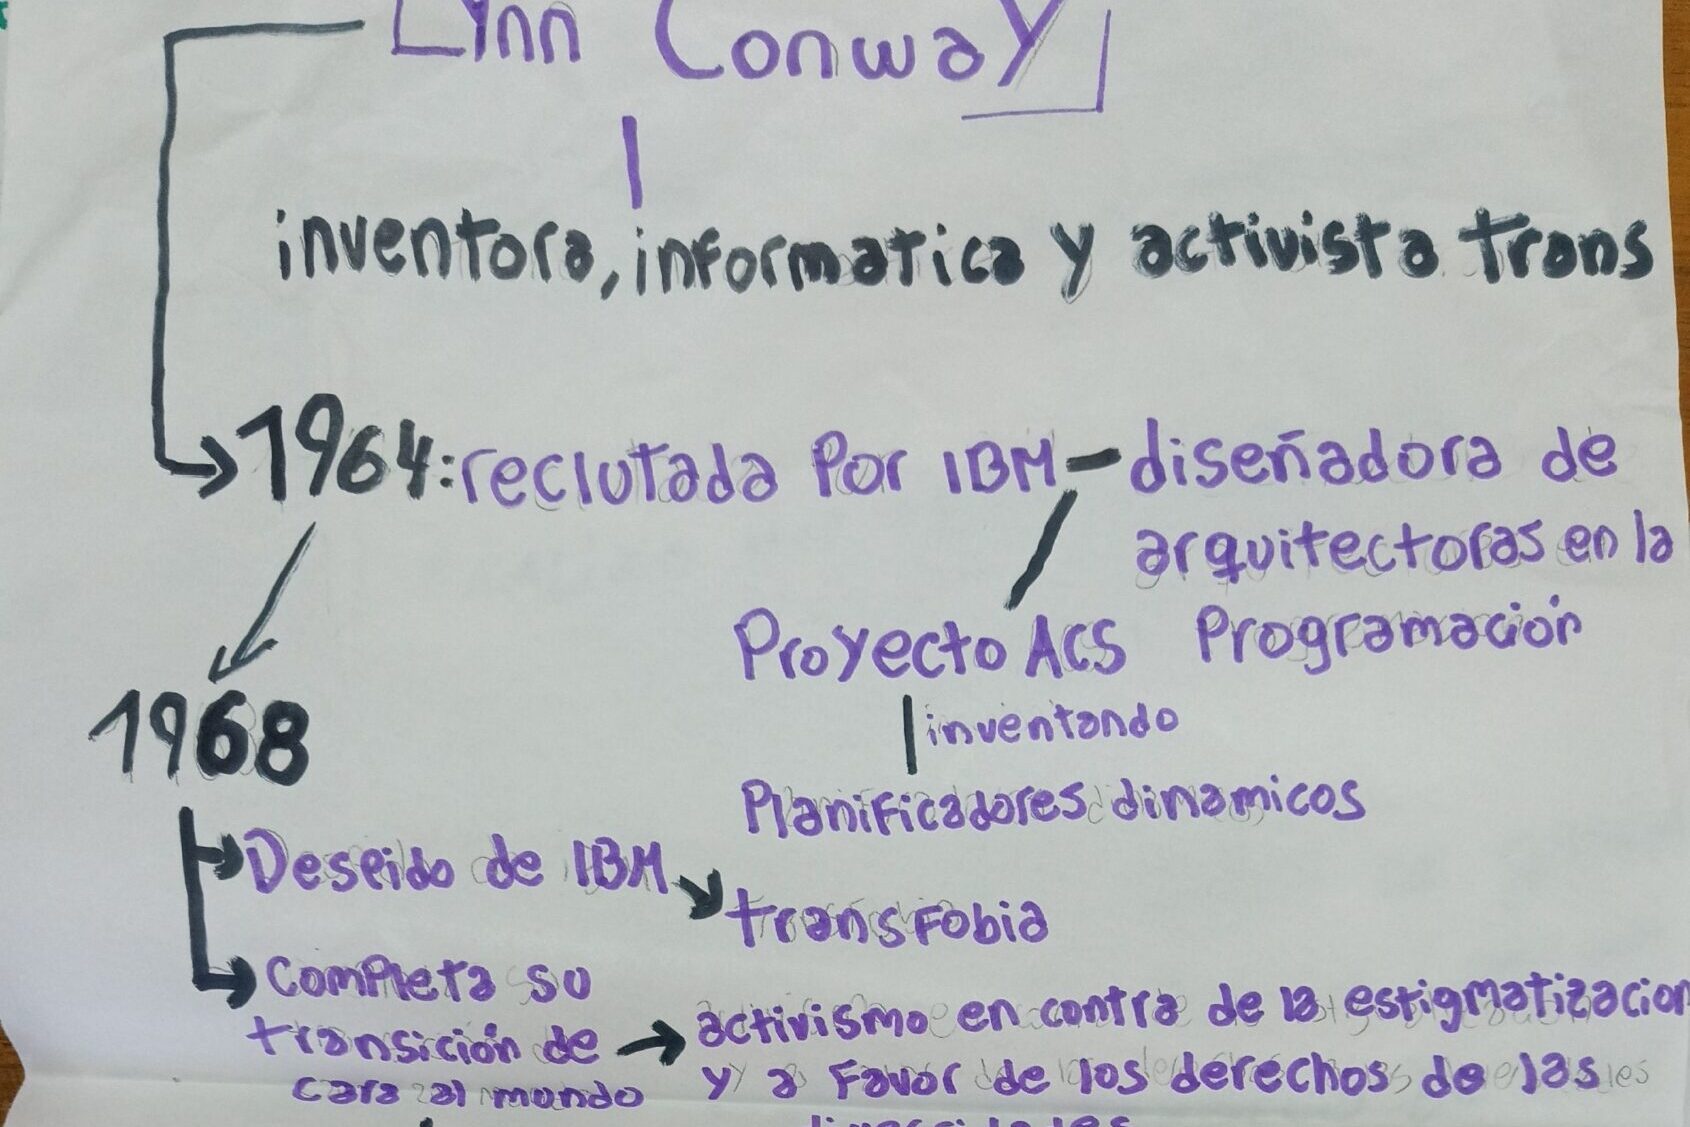 Lynn Conway
inventora, informatica y activista trans
1964: reclutada Por IBM - diseñadora de
arquitectoras en la
Programación
Proyecto ACS
inventando
Planificadores dinamicos
1968
Despido de IBM
transfobia
Completa su
transición de
cara al mundo
activismo en contra de la estigmatizacion
y a favor de los derechos de las